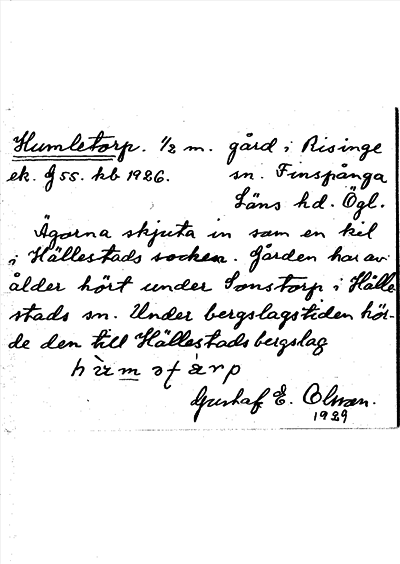 Humletorp. 1/2 m. gård i Risinge
ek. J 55. kb 1926. sn. Finspånga
Läns hd. Ögl.
Ägorna skjuta in som en kil
i Hällestads socken. Gården har av
ålder hört under Sonstorp i Hälle-
stads sn. Under bergslagstiden hör-
de den till Hällestads bergslag
Gustaf E. Olsson.
1929